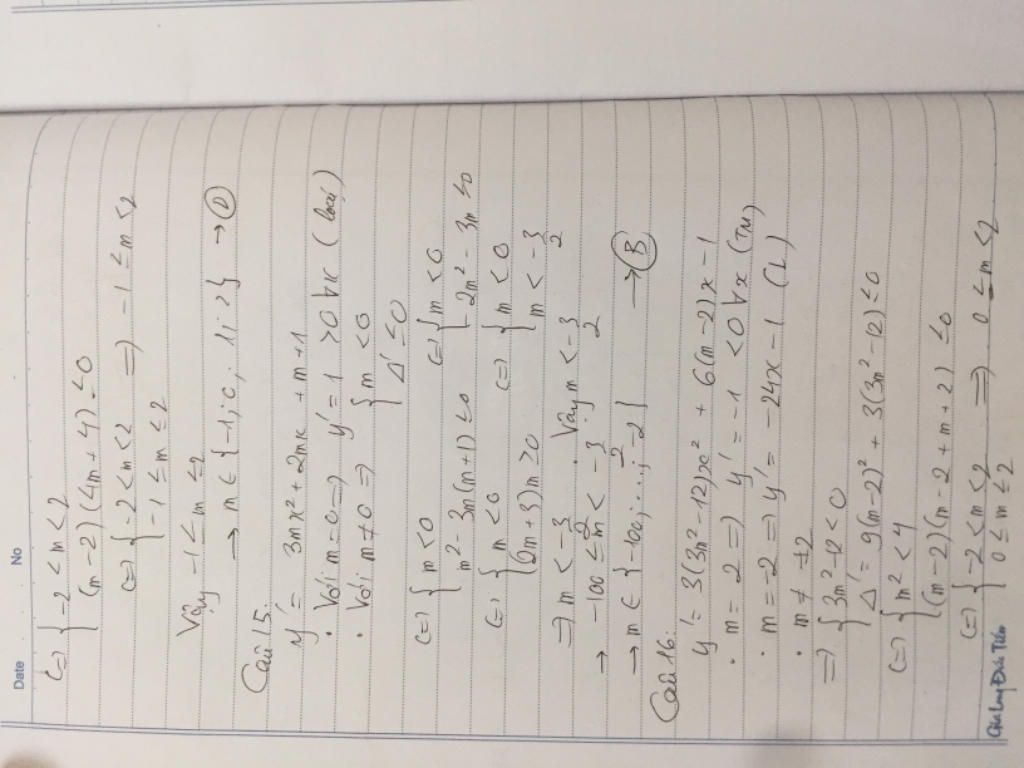 Date No
(=) { -2 < m < 2
{ (m-2)(4m+4) ≤ 0
(=) { -2 < m < 2 => -1 ≤ m < 2
{ -1 ≤ m ≤ 2
Vậy -1 ≤ m ≤ 2
→ m ∈ {-1; 0; 1; 2} → (D)
Câu 15.
y' = 3mx² + 2mx + m+1
• Với m = 0 => y' = 1 > 0 ∀x (loại)
• Với m ≠ 0 => { m < 0
{ Δ' ≤ 0
(=) { m < 0 (=) { m < 0
{ m² - 3m(m+1) ≤ 0 { -2m² - 3m ≤ 0
(=) { m < 0 (=) { m < 0
{ (2m+3)m ≥ 0 { m < -3/2
=> m < -3/2 . Vậy m < -3/2
→ -100 ≤ m < -3/2
→ m ∈ {-100; ...; -2} → (B)
Câu 16.
y' = 3(3m²-12)x² + 6(m-2)x - 1
• m = 2 => y' = -1 < 0 ∀x (TM)
• m = -2 => y' = -24x - 1 (L)
• m ≠ ±2
=> { 3m² - 12 < 0
{ Δ' = 9(m-2)² + 3(3m²-12) ≤ 0
(=) { m² < 4
{ (m-2)(m-2+m+2) ≤ 0
(=) { -2 < m < 2 => 0 ≤ m < 2
{ 0 ≤ m ≤ 2